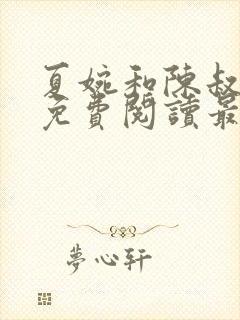 夏婉和陳叔
免費閱讀最
夢心軒